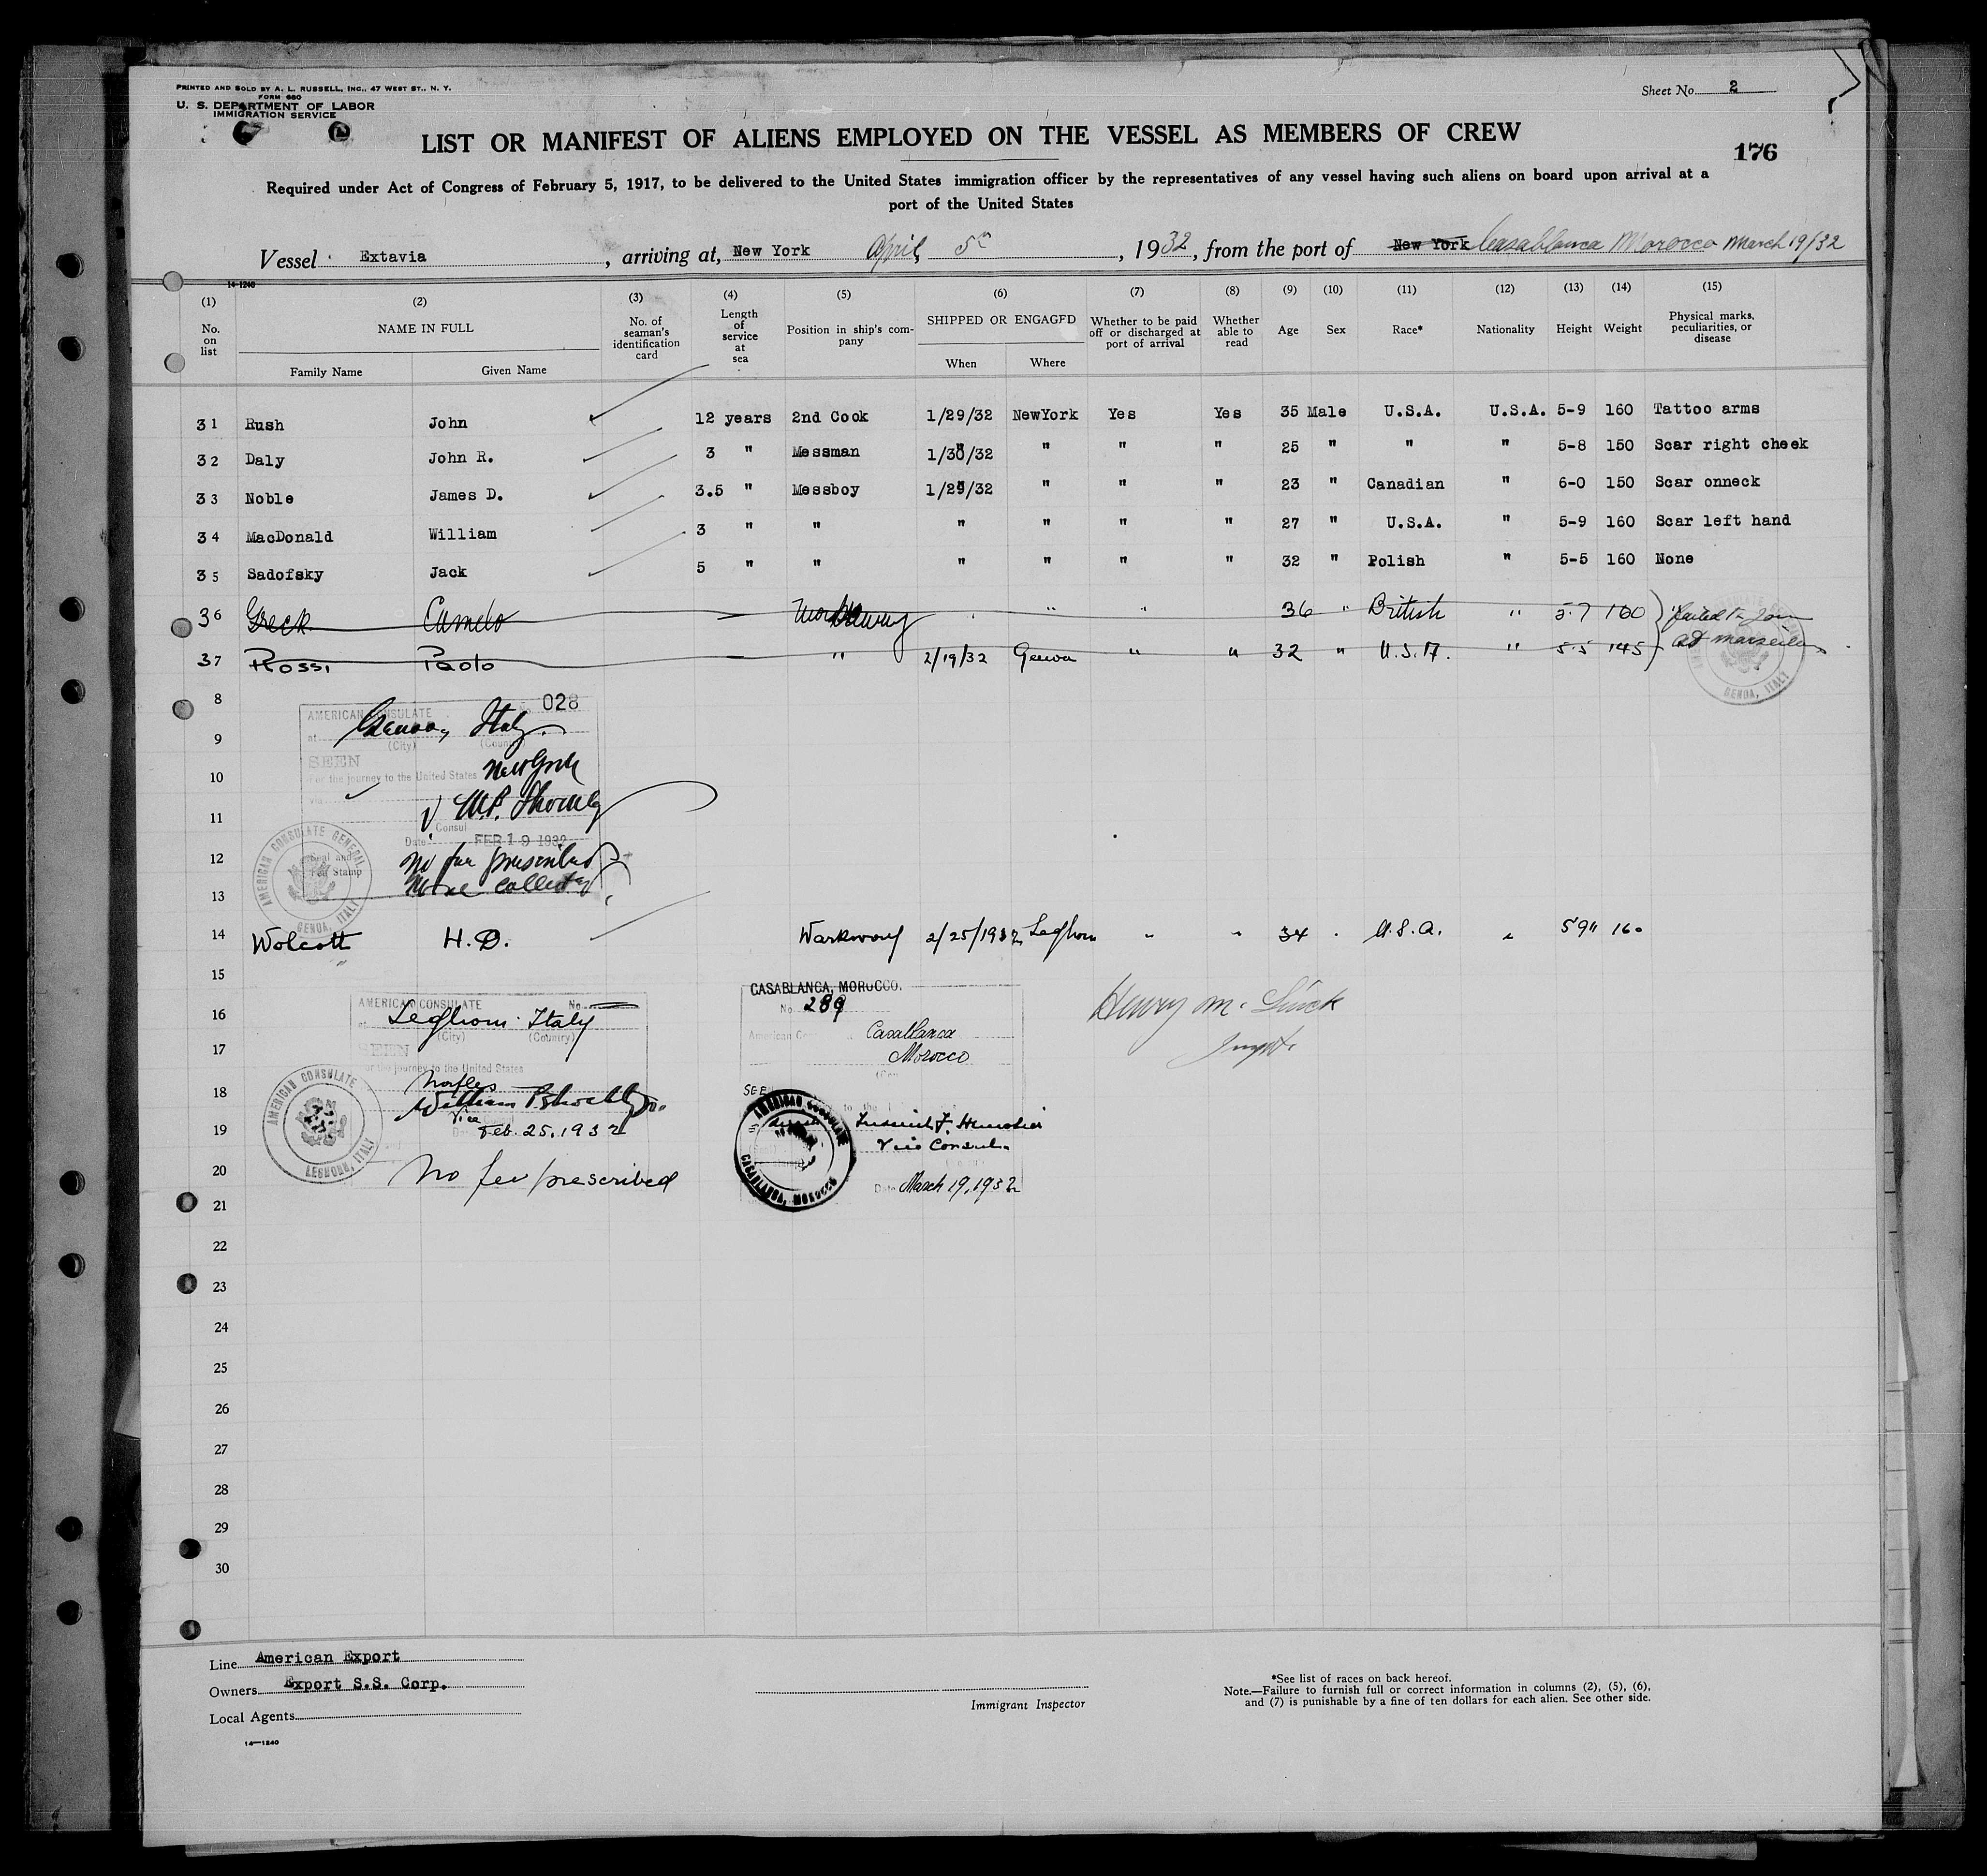 PRINTED AND SOLD BY A. L. RUSSELL, INC., 47 WEST ST., N. Y.
FORM 680
U. S. DEPARTMENT OF LABOR
IMMIGRATION SERVICE
Sheet No. 2
LIST OR MANIFEST OF ALIENS EMPLOYED ON THE VESSEL AS MEMBERS OF CREW
176
Required under Act of Congress of February 5, 1917, to be delivered to the United States immigration officer by the representatives of any vessel having such aliens on board upon arrival at a
port of the United States
Vessel Extavia, arriving at, New York April 5th, 1932, from the port of New York Casablanca Morocco March 19/32
14-1240
(1) No. on list
(2) NAME IN FULL Family Name Given Name
(3) No. of seaman's identification card
(4) Length of service at sea
(5) Position in ship's company
(6) SHIPPED OR ENGAGED When Where
(7) Whether to be paid off or discharged at port of arrival
(8) Whether able to read
(9) Age
(10) Sex
(11) Race*
(12) Nationality
(13) Height
(14) Weight
(15) Physical marks, peculiarities, or disease
31 Rush John 12 years 2nd Cook 1/29/32 NewYork Yes Yes 35 Male U.S.A. U.S.A. 5-9 160 Tattoo arms
32 Daly John R. 3 " Messman 1/30/32 " " " 25 " " " 5-8 150 Scar right cheek
33 Noble James D. 3.5 " Messboy 1/29/32 " " " 23 " Canadian " 6-0 150 Scar onneck
34 MacDonald William 3 " " " " " " 27 " U.S.A. " 5-9 160 Scar left hand
35 Sadofsky Jack 5 " " " " " " 32 " Polish " 5-5 160 None
36 Greck Camelo " " 36 " British " 5-7 160 failed to join
37 Rossi Paolo " 2/19/32 Genoa " " 32 " U.S.A. " 5-5 145 at Marseilles
GENOA, ITALY
8
AMERICAN CONSULATE No. 028
at Genoa, Italy.
(City) (Country)
9
SEEN
10
For the journey to the United States New York
via
11
Consul
Date FEB 19 1932
12
No fee prescribed
None collected
13
AMERICAN CONSULATE GENERAL
GENOA, ITALY
Seal and
Fee Stamp
14 Wolcott H. D. Workaway 2/25/1932 Leghorn " " 34 " U.S.A. " 5 9" 160
15
AMERICAN CONSULATE No.
at Leghorn Italy
(City) (Country)
SEEN
For the journey to the United States
Naples
Vice
Feb. 25, 1932
No fee prescribed
AMERICAN CONSULATE
LEGHORN, ITALY
CASABLANCA, MOROCCO.
No. 289
Casablanca
Morocco
SEEN
to the
Vice Consul
Date March 19, 1932
AMERICAN CONSULATE
CASABLANCA, MOROCCO
Henry M.
16
17
18
19
20
21
22
23
24
25
26
27
28
29
30
Line American Export
Owners Export S.S. Corp.
Local Agents
14—1240
Immigrant Inspector
*See list of races on back hereof.
Note.—Failure to furnish full or correct information in columns (2), (5), (6),
and (7) is punishable by a fine of ten dollars for each alien. See other side.